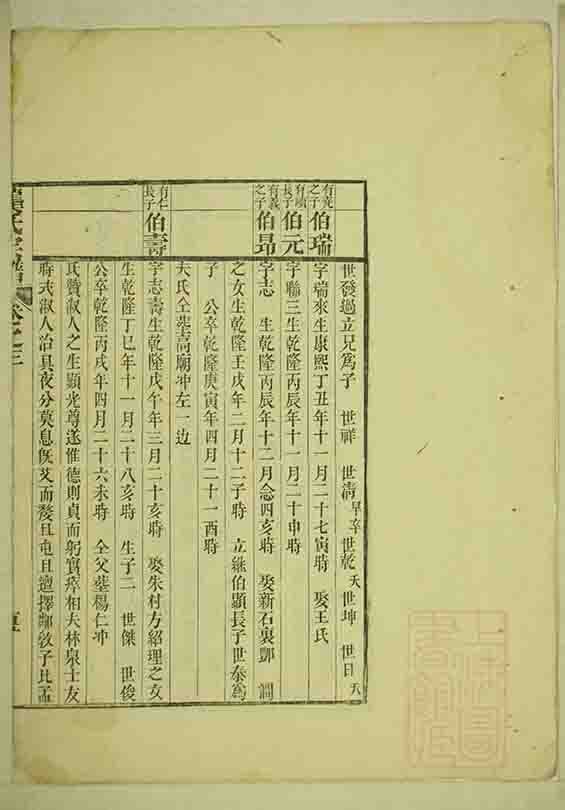 世發過立兄為子 世祥 世清早卒 世乾夭 世坤 世日夭
有亮之子 伯瑞 字瑞來生康熙丁丑年十一月二十七寅時 娶王氏
有順長子 伯元 字聯三生乾隆丙辰年十一月二十申時
有義之子 伯昂 字志 生乾隆丙辰年十二月念四亥時 娶新石裏鄧 澗
之女生乾隆壬戌年二月十二子時 立繼伯顯長子世泰為
子 公卒乾隆庚寅年四月二十一酉時
夫氏仝塋高廟冲左一邊
有仁長子 伯壽 字志壽生乾隆戊午年三月二十亥時 娶朱村方紹理之女
生乾隆丁巳年十一月二十八亥時 生子二 世傑 世俊
公卒乾隆丙戌年四月二十六未時 仝父塋楊仁冲
氏贊淑人之生顯光尊遂惟德則貞而躬實瘁相夫林泉士友
時求淑人治具夜分莫息旣艾而嫠且屯且邅擇鄰敎子比孟
氏宗譜 卷之三 五